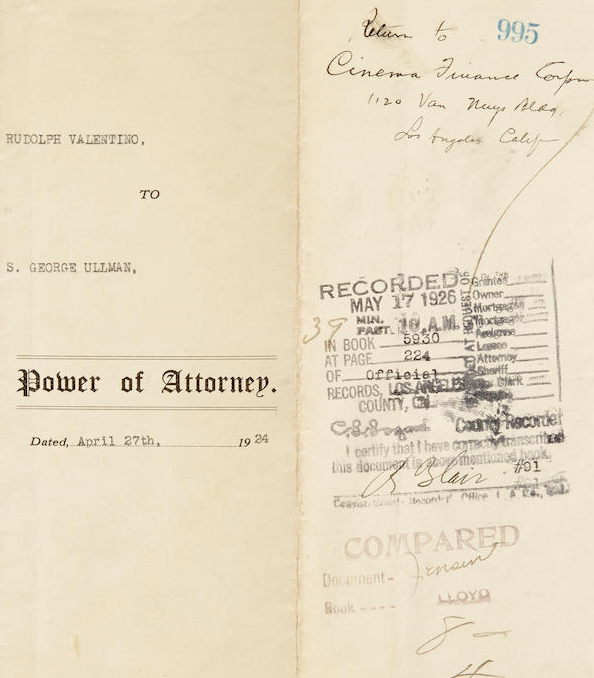 RUDOLPH VALENTINO,
TO
S. GEORGE ULLMAN,
Power of Attorney.
Dated, April 27th, 1924
Return to 995
Cinema Finance Corpn
1120 Van Nuys Bldg,
Los Angeles Calif
RECORDED
MAY 17 1926
39 MIN. PAST. 10 A.M.
IN BOOK 5930
AT PAGE 224
OF Official
RECORDS, LOS ANGELES
COUNTY, CAL
AT REQUEST OF
Grantee
Owner
Mortgagor
Mortgagee
Assignee
Lessee
Attorney
Sheriff
Clerk
County Recorder
I certify that I have correctly transcribed
this document in above mentioned book.
Blair #91
Copyist County Recorder's Office, L. A. Co., Cal.
COMPARED
Document- Jensen
Book ---- LLOYD
8 —